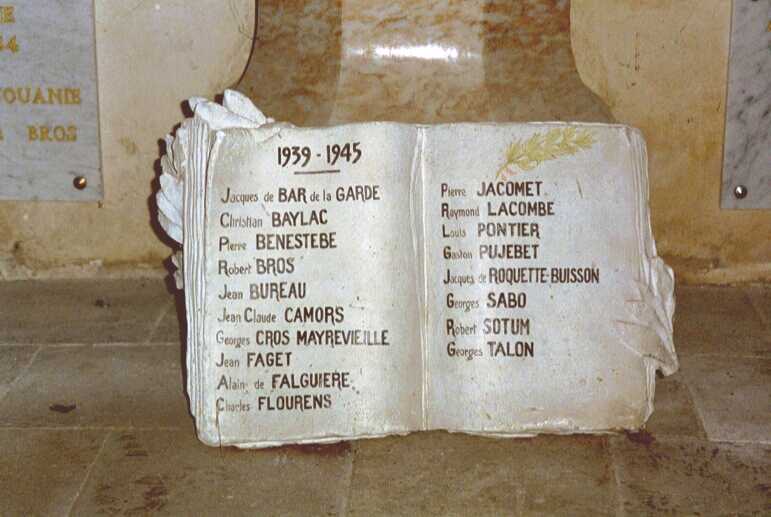 NE
44
OUANIE
BROS
1939 - 1945
Jacques de BAR de la GARDE
Christian BAYLAC
Pierre BENESTEBE
Robert BROS
Jean BUREAU
Jean Claude CAMORS
Georges CROS MAYREVIEILLE
Jean FAGET
Alain de FALGUIERE
Charles FLOURENS
Pierre JACOMET
Raymond LACOMBE
Louis PONTIER
Gaston PUJEBET
Jacques de ROQUETTE-BUISSON
Georges SABO
Robert SOTUM
Georges TALON